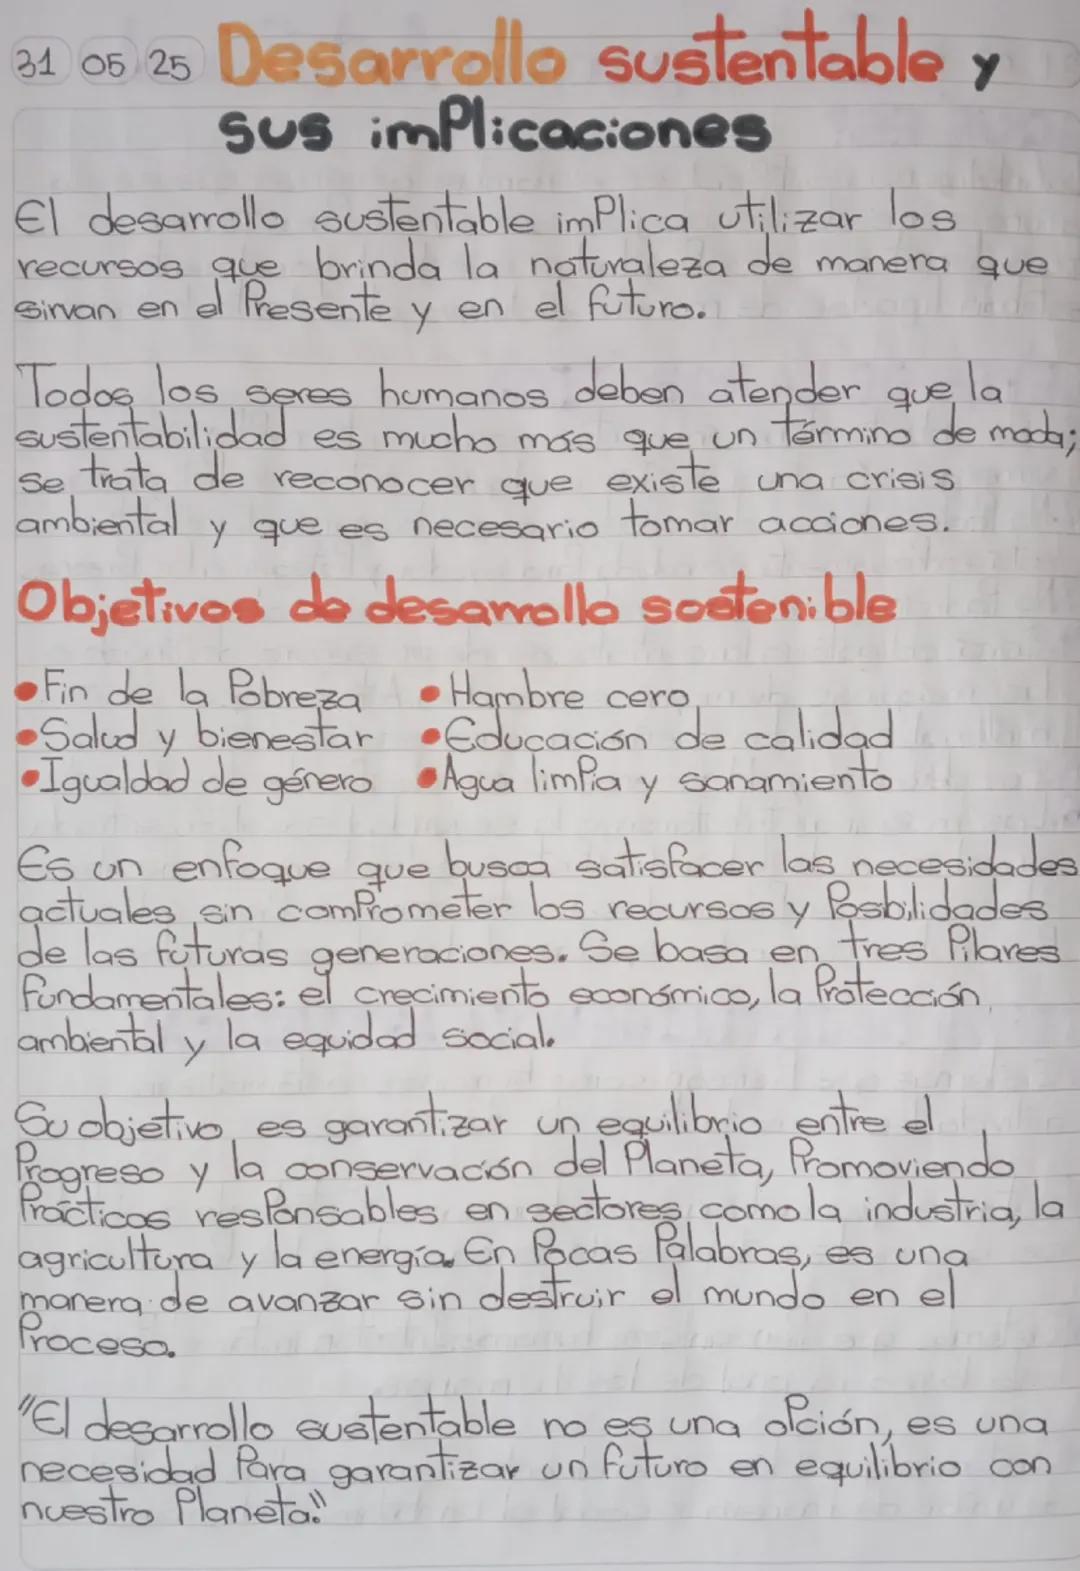 31 05 25 Desarrollo sustentable y
sus implicaciones
El desarrollo sustentable implica utilizar los
recursos que brinda la naturaleza de manera que
sirvan en el Presente y en el futuro.
Todos los seres humanos deben atender que la
sustentabilidad es mucho más que un término de moda;
se trata de reconocer que existe una crisis
ambiental y que es necesario tomar acciones.
Objetivos de desarrollo sostenible
• Fin de la Pobreza • Hambre cero
• Salud y bienestar • Educación de calidad
• Igualdad de género • Agua limpia y sanamiento
Es un enfoque que busca satisfacer las necesidades
actuales sin comprometer los recursos y Posibilidades
de las futuras generaciones. Se basa en tres Pilares
fundamentales: el crecimiento económico, la Protección
ambiental y la equidad social.
Su objetivo es garantizar un equilibrio entre el
Progreso y la conservación del Planeta, Promoviendo
Prácticas responsables en sectores como la industria, la
agricultura y la energía. En Pocas Palabras, es una
manera de avanzar sin destruir el mundo en el
Proceso.
"El desarrollo sustentable no es una opción, es una
necesidad Para garantizar un futuro en equilibrio con
nuestro Planeta."